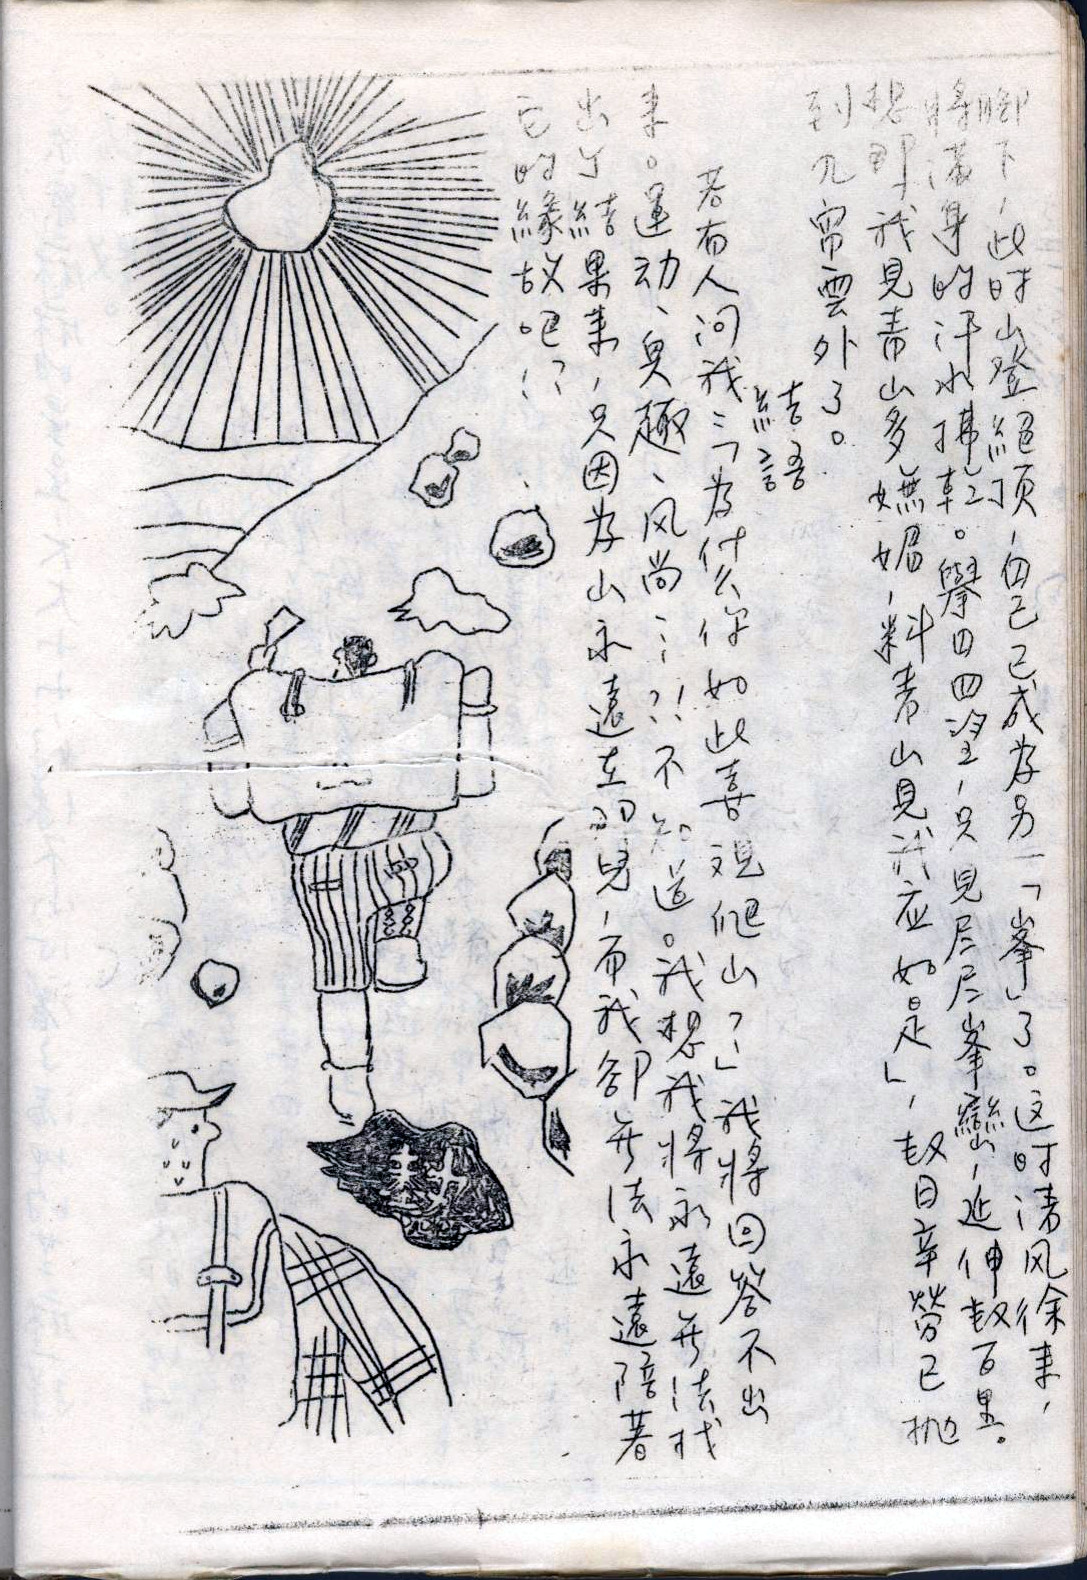 腳下，此时山登絕顶，自己已成为另一「峯」了。这时清风徐来，
將滿身的汗水拂乾。舉目四望，只見层层峯巒，延伸数百里。
想那「我見青山多嫵媚，料青山見我应如是」，数日辛勞已拋
到九霄雲外了。
結語
若有人问我：「为什么你如此喜观爬山？」我將回答不出
来。運动、興趣、风尚……？？不知道。我想我将永遠无法找
出个結果来，只因为山永遠在那兒，而我卻无法永遠陪着
它的緣故吧！？……